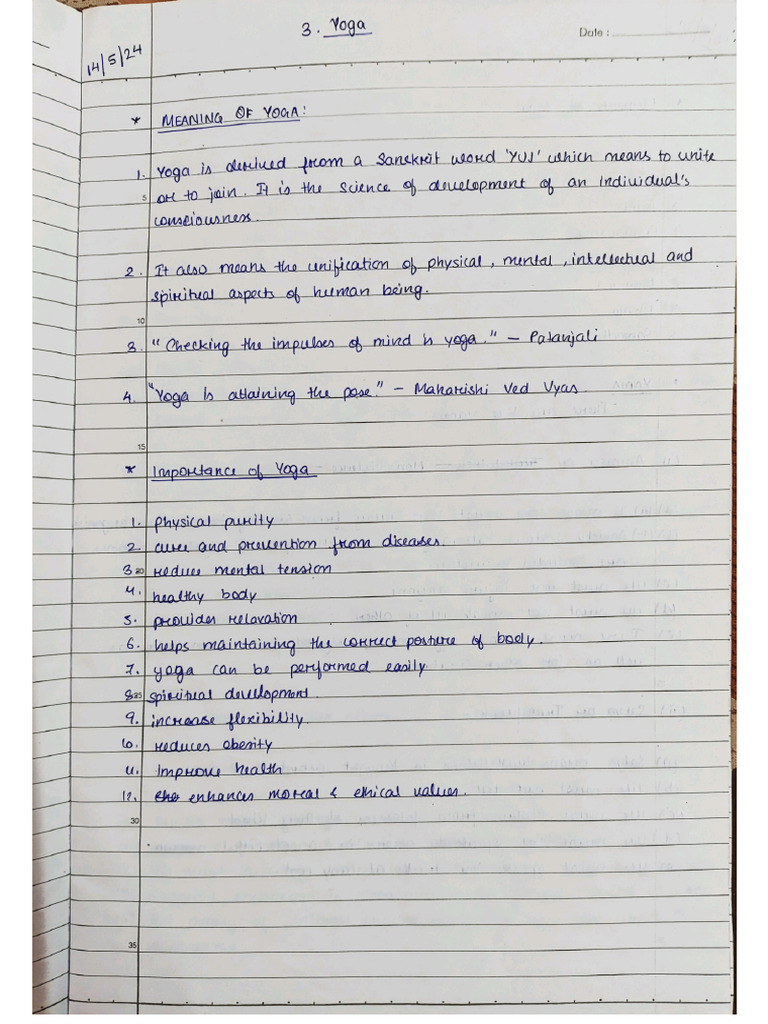 3. Yoga
Date :
14/5/24
* MEANING OF YOGA:
1. Yoga is derived from a Sanskrit word 'YUJ' which means to unite
5 or to join. It is the science of development of an individual's
consciousness.
2. It also means the unification of physical, mental, intellectual and
spiritual aspects of human being.
10
3. "Checking the impulses of mind is yoga." – Patanjali
4. "Yoga is attaining the pose." – Maharishi Ved Vyas.
15
* Importance of Yoga
1. physical purity
2. cure and prevention from diseases.
3. 20 reduce mental tension
4. healthy body
5. provides relaxation
6. helps maintaining the correct posture of body.
7. yoga can be performed easily
8. 25 spiritual development.
9. increase flexibility.
10. reduces obesity
11. Improve health
12. enhances moral & ethical values.
30
35